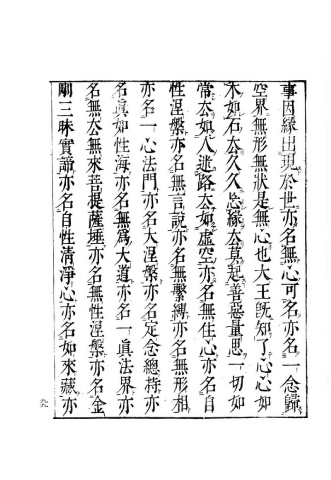 事因緣出現於世亦名無心可名亦名一念歸
空界無形無狀是無心也大王既知了心心如
木如石去久久忘緣去莫起善惡量思一切如
常去如人迷路去如虛空亦名無住心亦名自
性涅槃亦名無言說亦名無繫縛亦名無形相
亦名一心法門亦名大涅槃亦名定念總持亦
名眞如性海亦名無爲大道亦名一眞法界亦
名無去無來菩提薩埵亦名無性涅槃亦名金
剛三昧實諦亦名自性清淨心亦名如來藏亦